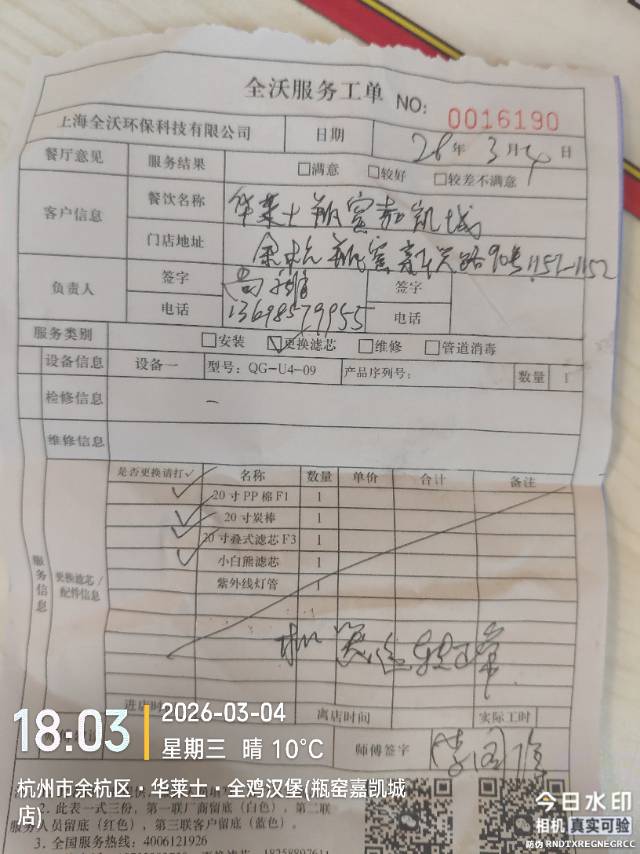 全沃服务工单 NO: 0016190
上海全沃环保科技有限公司 日期 26年3月4日
餐厅意见 服务结果 □满意 □较好 □较差不满意
客户信息 餐饮名称 华莱士瓶窑嘉凯城
门店地址 余杭瓶窑嘉兴路90号1151-1152
负责人 签字 签字
电话 13698579955 电话
服务类别 □安装 ☑更换滤芯 □维修 □管道消毒
设备信息 设备一 型号: QG-U4-09 产品序列号: 数量 1
检修信息 —
维修信息
服务信息 更换滤芯/配件信息
是否更换请打√ 名称 数量 单价 合计 备注
√ 20寸PP棉F1 1
√ 20寸炭棒 1
√ 20寸叠式滤芯F3 1
√ 小白熊滤芯 1
紫外线灯管 1
机器运转正常
进店时 离店时间 实际工时
师傅签字
18:03
2026-03-04
星期三 晴 10°C
杭州市余杭区·华莱士·全鸡汉堡(瓶窑嘉凯城店)
2. 此表一式三份，第一联厂商留底（白色），第二联
服务人员留底（红色），第三联客户留底（蓝色）。
3. 全国服务热线: 4006121926
今日水印
相机 真实可验
防伪 RNDTXREGNEGRCC